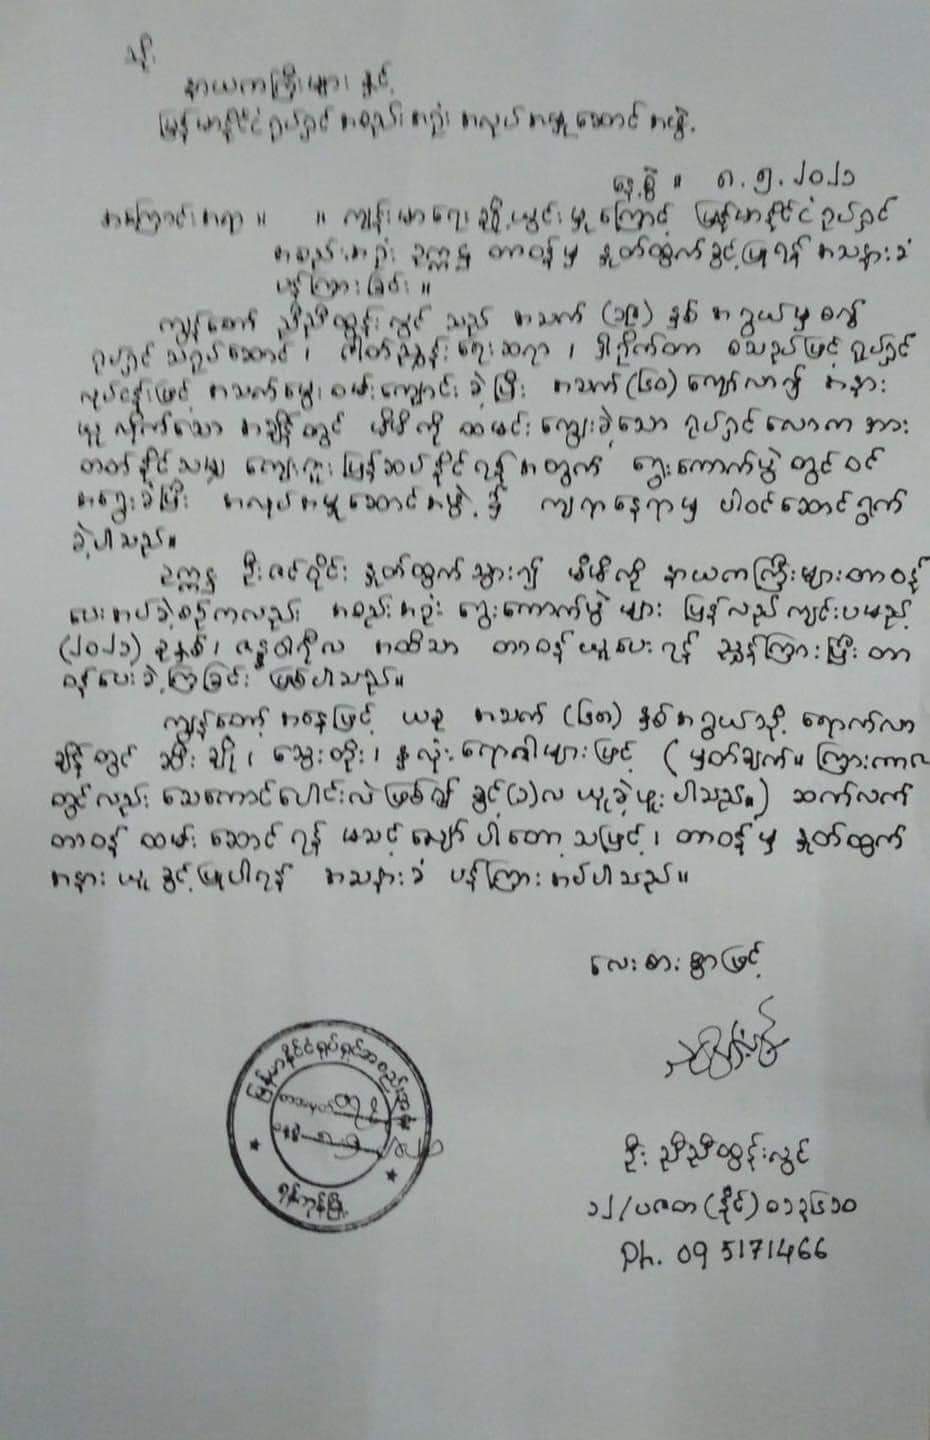 သို့
နာယကကြီးများ နှင့်
မြန်မာနိုင်ငံ ရုပ်ရှင် အစည်းအရုံး အလုပ်အမှုဆောင် အဖွဲ့.
နေ့စွဲ ။ ၈.၅.၂၀၂၁
အကြောင်းအရာ ။ ။ ကျန်းမာရေးချို့ယွင်းမှုကြောင့် မြန်မာနိုင်ငံ ရုပ်ရှင်
အစည်းအရုံး ဥက္ကဋ္ဌ တာဝန်မှ နှုတ်ထွက်ခွင့်ပြုရန် အသနားခံ
ပန်ကြားခြင်း ။
ကျွန်တော် ညီညီထွန်းလွင် သည် အသက် (၁၉) နှစ် အရွယ်မှ စ၍
ရုပ်ရှင် သရုပ်ဆောင်၊ ဇါတ်ညွှန်းရေးဆရာ၊ ဒါရိုက်တာ စသည်ဖြင့် ရုပ်ရှင်
လုပ်ငန်းဖြင့် အသက်မွေးဝမ်းကျောင်းခဲ့ပြီး အသက် (၆၀) ကျော်လာ၍ အနား
ယူ လိုက်သော အချိန်တွင် မိမိကို ထမင်းကျွေးခဲ့သော ရုပ်ရှင်လောကအား
တတ်နိုင်သမျှ ကျေးဇူးပြန်ဆပ်နိုင်ရန်အတွက် ရွေးကောက်ပွဲတွင် ဝင်
အရွေးခံပြီး အလုပ်အမှုဆောင်အဖွဲ့၌ ကျရာနေရာမှ ပါဝင်ဆောင်ရွက်
ခဲ့ပါသည်။
ဥက္ကဋ္ဌ ဦးဇင်ဝိုင်း နှုတ်ထွက်သွား၍ မိမိကို နာယကကြီးများတာဝန်
ပေးအပ်ခဲ့စဉ်ကလည်း အစည်းအရုံး ရွေးကောက်ပွဲများ ပြန်လည်ကျင်းပမည့်
(၂၀၂၁) ခုနှစ်၊ ဇန္နဝါရီလ အထိသာ တာဝန်ယူပေးရန် ညွှန်ကြားပြီး တာ
ဝန်ပေးခဲ့ကြခြင်း ဖြစ်ပါသည်။
ကျွန်တော့်အနေဖြင့် ယခု အသက် (၆၈) နှစ်အရွယ်သို့ ရောက်လာ
ချိန်တွင် ဆီးချို၊ သွေးတိုး၊ နှလုံးရောဂါများဖြင့် (မှတ်ချက်။ ကြားကာလ
တွင်လည်း သေကောင်ပေါင်းလဲဖြစ်၍ ခွင့်(၁)လ ယူခဲ့ဖူးပါသည်။) ဆက်လက်
တာဝန် ထမ်းဆောင်ရန် မသင့်လျော်ပါတော့သဖြင့်၊ တာဝန်မှ နှုတ်ထွက်
အနားယူခွင့်ပြုပါရန် အသနားခံ ပန်ကြားအပ်ပါသည်။
လေးစားစွာဖြင့်
ဦးညီညီထွန်းလွင်
၁၂/ပဇတ(နိုင်)၀၁၃၆၁၀
Ph. 09 5171466
မြန်မာနိုင်ငံရုပ်ရှင်အစည်းအရုံး
ရန်ကုန်မြို့